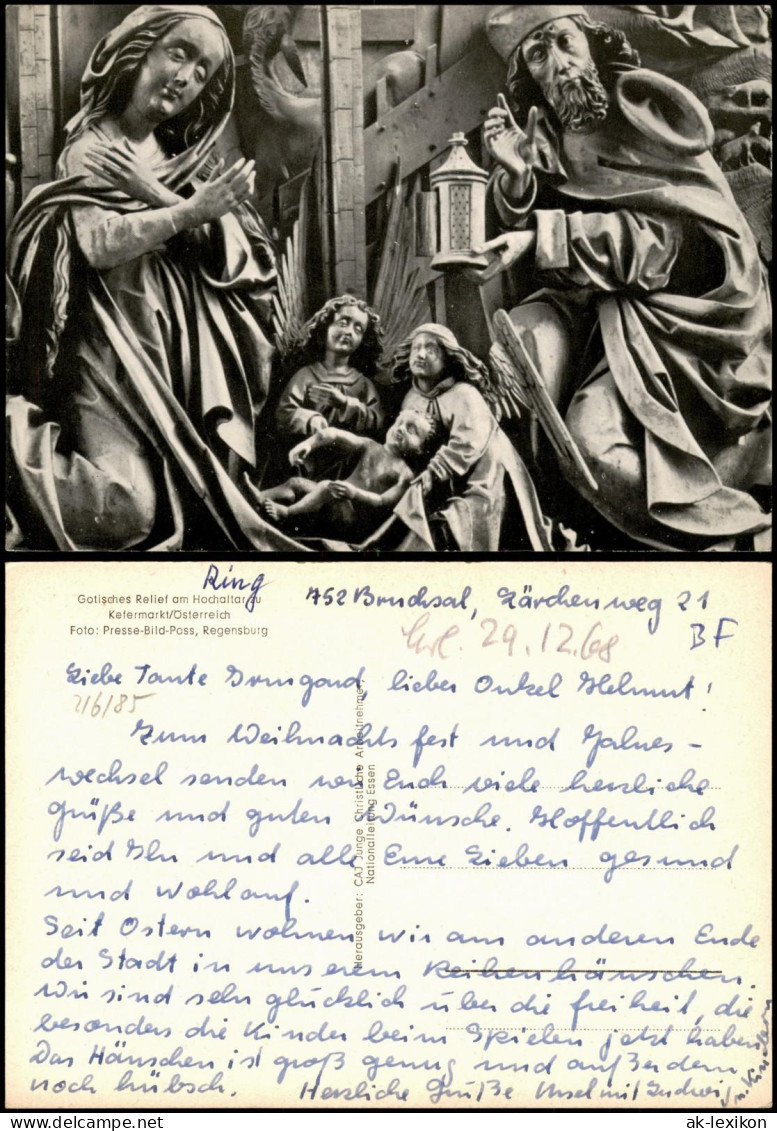 Ring
Gotisches Relief am Hochaltar zu
Kefermarkt/Österreich
Foto: Presse-Bild-Poss, Regensburg
752 Bruchsal, Lärchenweg 21
29.12.68
BF
Liebe Tante Irmgard, lieber Onkel Helmut!
21/6/85
Zum Weihnachtsfest und Jahres-
wechsel senden wir Euch viele herzliche
Grüße und guten Wünsche. Hoffentlich
seid Ihr und alle Eure Lieben gesund
und wohlauf.
Seit Ostern wohnen wir am anderen Ende
der Stadt in unserem Reihenhäuschen.
Wir sind sehr glücklich über die Freiheit, die
besonders die Kinder beim Spielen jetzt haben.
Das Häuschen ist groß genug und außerdem
noch hübsch. Herzliche Grüße Ursel mit Ludwig
u. Kindern
Herausgeber: CAJ Junge Christliche Arbeitnehmer,
Nationalleitung Essen
ak-lexikon